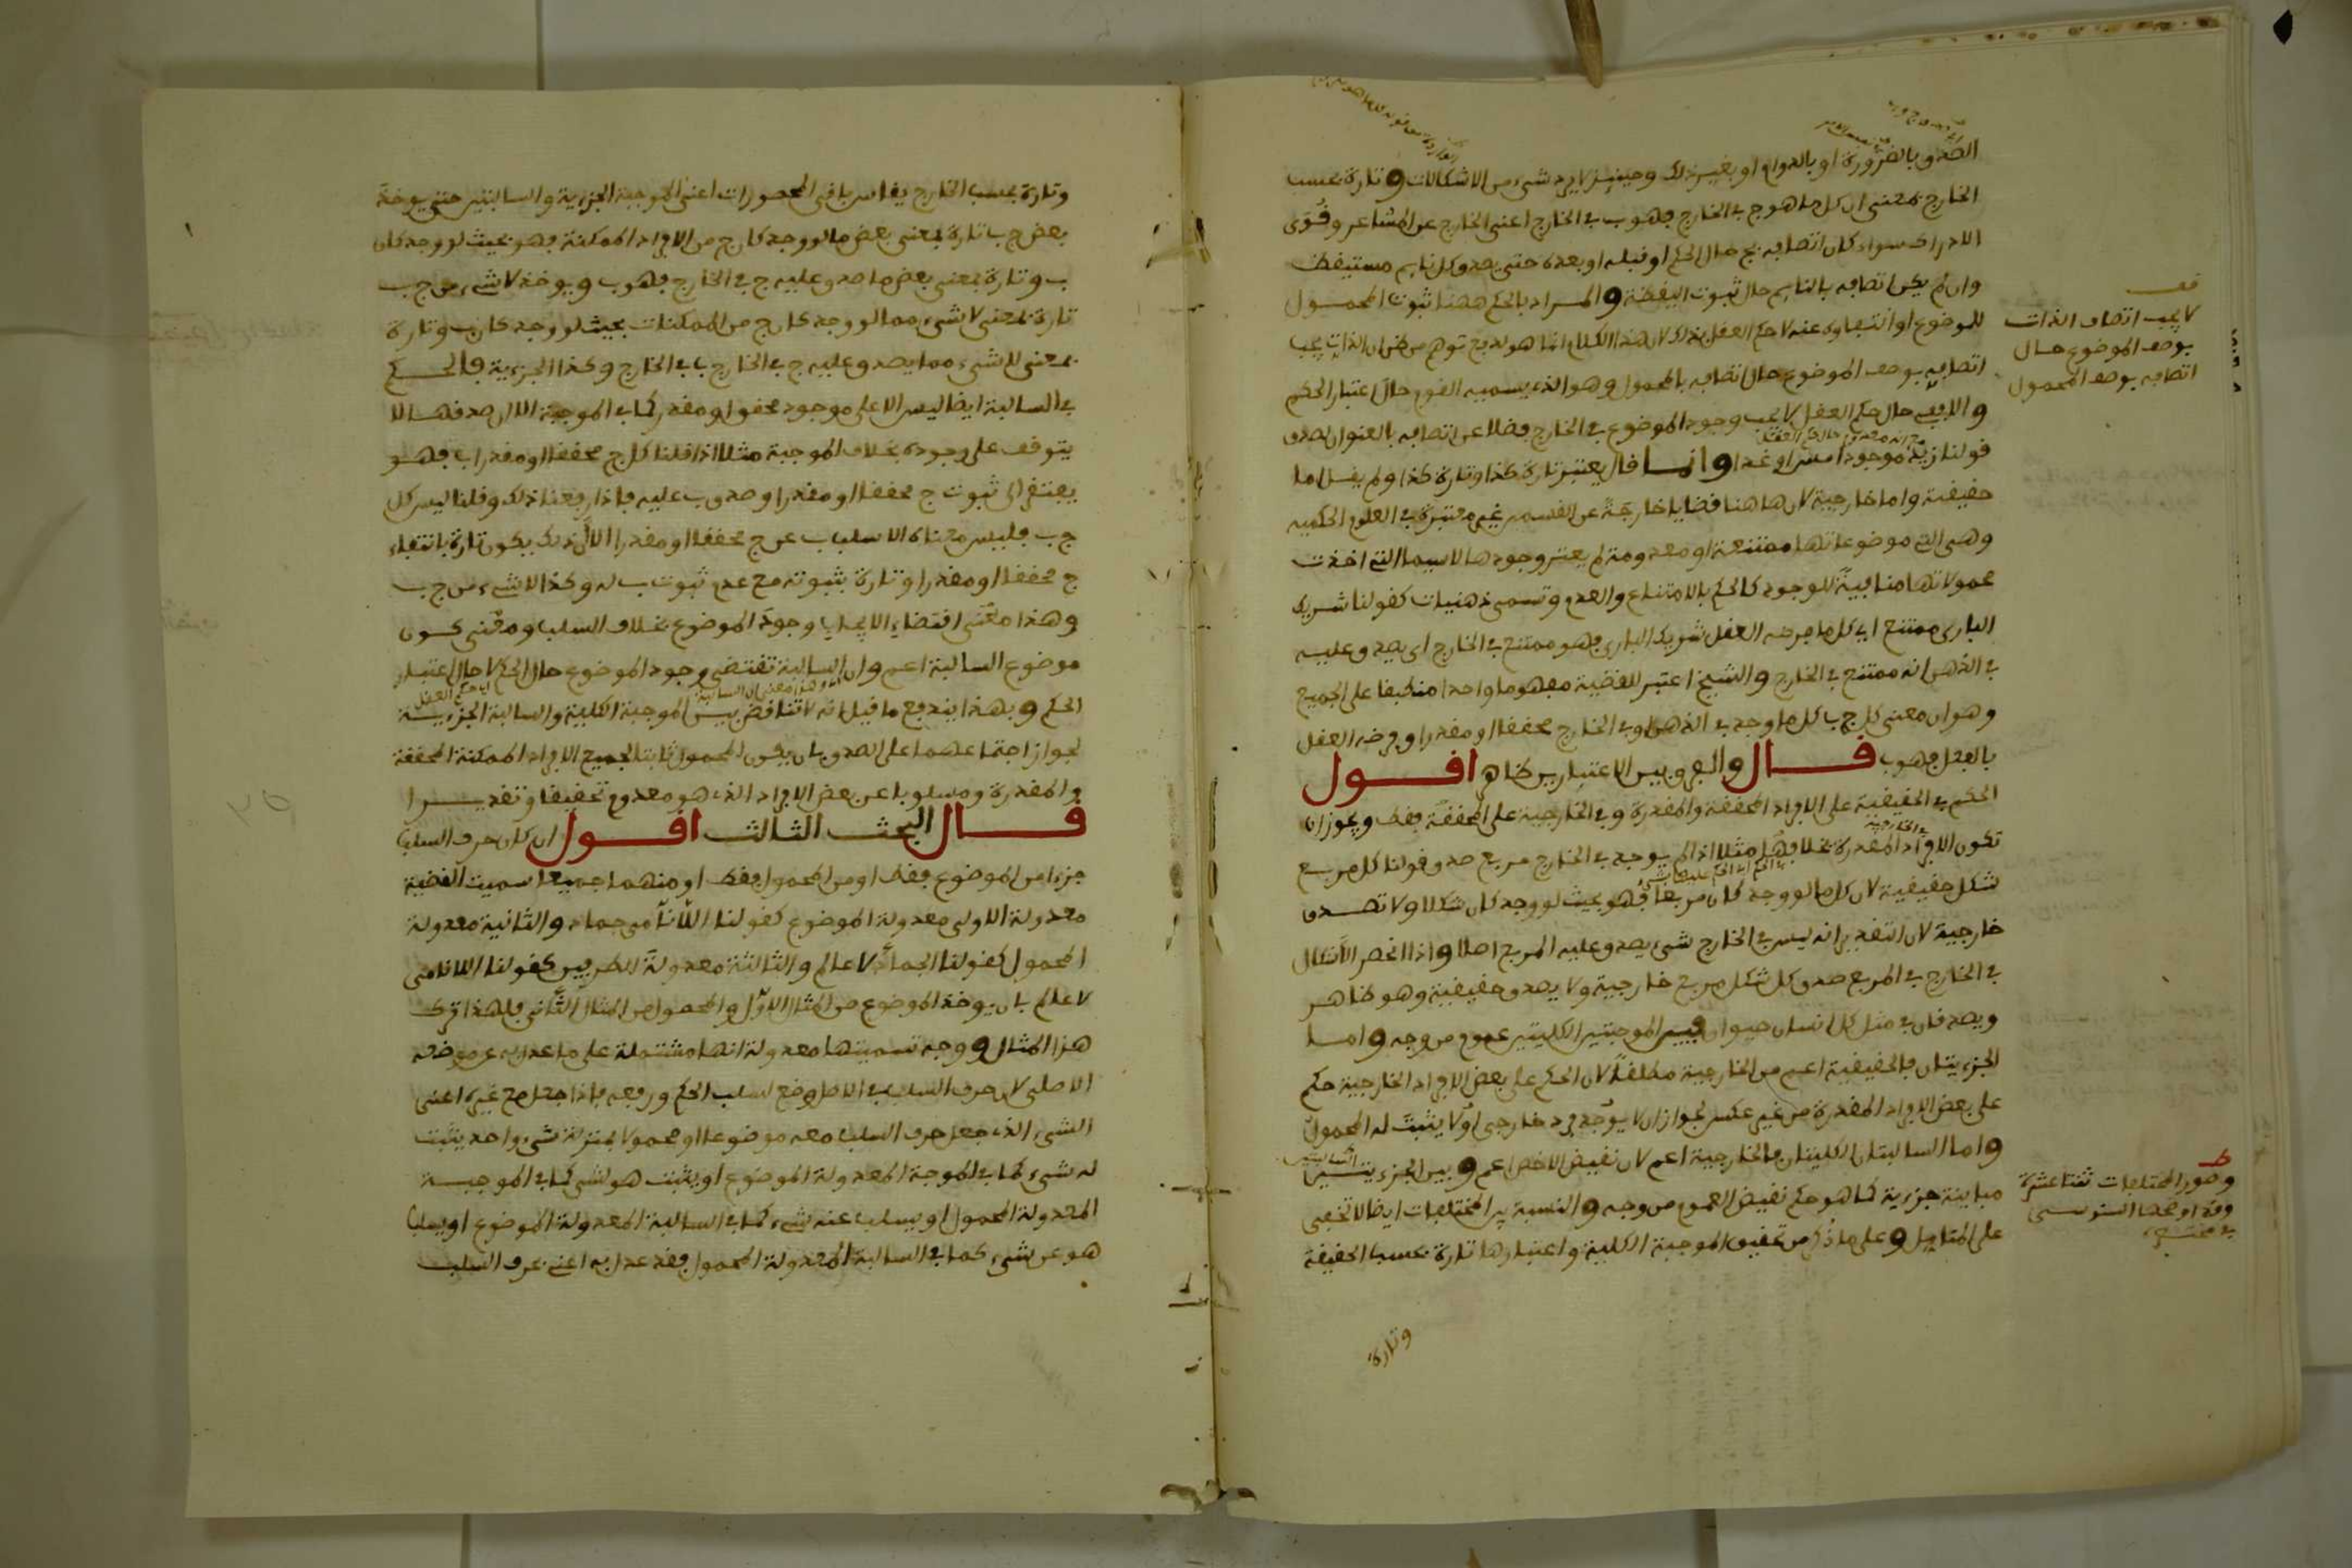 الصدق بالضرورة او بالدوام او بغير ذلك وحينئذ لا يرد شيء من الاشكالات وتارة بحسب
الخارج بمعنى ان كل ما هو ج في الخارج فهو ب في الخارج اعني الخارج عن المشاعر وقوى
الادراك سواء كان اتصافه بج حال الحكم او قبله او بعده حتى يصدق كل نايم مستيقظ
وان لم يكن اتصافه بالنايم حال ثبوت اليقظة والمراد بالحكم ههنا ثبوت المحمول
للموضوع او انتفاوه عنه لا حكم العقل بذاك لان هذا الكلام انما هو لدفع توهم من ظن ان الذات يجب
اتصافه بوصف الموضوع حال اتصافه بالمحمول وهو الذي يسميه القوم حال اعتبار الحكم
والا ففي حال حكم العقل لا يجب وجود الموضوع في الخارج فضلا عن اتصافه بالعنوان لصدق
قولنا زيد موجود امس او غدا وانما قال يعتبر تارة كذا وتارة كذا ولم يقل اما
حقيقية واما خارجية لان هاهنا قضايا خارجة عن القسمين غير معتبرة في العلوم الحكمية
وهي التي موضوعاتها ممتنعة او معدومة لم يعتبر وجودها لاسيما التي اخذت
محمولاتها منافية للوجود كالحكم بالامتناع والعدم وتسمى ذهنيات كقولنا شريك
الباري ممتنع اي كل ما فرضه العقل شريك الباري فهو ممتنع في الخارج اي يصدق عليه
في الذهن انه ممتنع في الخارج والشيخ اعتبر للقضية مفهوما واحدا منطبقا على الجميع
وهو ان معنى كل ج ب كل ما وجد في الذهن او في الخارج محققا او مقدرا وفرضه العقل
بالفعل فهو ب قال والفرق بين الاعتبارين ظاهر اقول
الحكم في الحقيقية على الافراد المحققة والمقدرة وفي الخارجية على المحققة فقط ويجوز ان
تكون الافراد المقدرة بخلافها مثلا اذا لم يوجد في الخارج مربع صدق قولنا كل مربع
شكل حقيقية لان كل ما لو وجد كان مربعا فهو بحيث لو وجد كان شكلا ولا تصدق
خارجية لان التقدير انه ليس في الخارج شيء يصدق عليه المربع اصلا واذا انحصر الاشكال
في الخارج في المربع صدق كل شكل مربع خارجية ولا يصدق حقيقية وهو ظاهر
ويصدقان في مثل كل انسان حيوان فبين الموجبتين الكليتين عموم من وجه واما
الجزءيتان فالحقيقية اعم من الخارجية مطلقا لان الحكم على بعض الافراد الخارجية حكم
على بعض الافراد المقدرة من غير عكس لجواز ان لا يوجد فرد خارجي او لا يثبت له المحمول
واما السالبتان الكليتان فالخارجية اعم لان نقيض الاخص اعم وبين الجزءيتين
مباينة جزءية كما هو حكم نقيض العموم من وجه والنسبة بين المختلفات ايضا لا تخفى
على المتامل وعلى ما ذكر من تحقيق الموجبة الكلية واعتبارها تارة بحسب الحقيقة
وتارة
قف
لا يجب اتصاف الذات
بوصف الموضوع حال
اتصافه بوصف المحمول
وصور المختلفات ثنتا عشرة
وقد اوضحها السنوسي
وتارة بحسب الخارج يقاس باقي المحصورات اعني الموجبة الجزءية والسالبتين حتى يوخذ
بعض ج ب تارة بمعنى بعض ما لو وجد كان ج من الافراد الممكنة فهو بحيث لو وجد كان
ب وتارة بمعنى بعض ما صدق عليه ج في الخارج فهو ب ويوخذ لا شيء من ج ب
تارة بمعنى لا شيء مما لو وجد كان ج من الممكنات بحيث لو وجد كان ب وتارة
بمعنى لا شيء مما يصدق عليه ج في الخارج ب في الخارج وكذا الجزءية فالحكم
في السالبة ايضا ليس الا على موجود محقق او مقدر كما في الموجبة الا ان صدقها لا
يتوقف على وجوده بخلاف الموجبة مثلا اذا قلنا كل ج محققا او مقدرا ب فهو
يفتقر الى ثبوت ج محققا او مقدرا وصدق ب عليه فاذا رفعنا ذلك وقلنا ليس كل
ج ب فليس معناه الا سلب ب عن ج محققا او مقدرا الا ان ذلك يكون تارة بانتفاء
ج محققا او مقدرا وتارة بثبوته مع عدم ثبوت ب له وكذا لا شيء من ج ب
وهذا معنى اقتضاء الايجاب وجود الموضوع بخلاف السلب ومعنى كون
موضوع السالبة اعم وان السالبة تقتضي وجود الموضوع حال الحكم لا حال اعتبار
الحكم وبهذا يندفع ما قيل انه لا تناقض بين الموجبة الكلية والسالبة الجزءية
لجواز اجتماعهما على الصدق بان يكون المحمول ثابتا لجميع الافراد الممكنة المحققة
والمقدرة ومسلوبا عن بعض الافراد الذي هو معدوم تحقيقا وتقديرا
قال البحث الثالث اقول ان كان حرف السلب
جزءا من الموضوع فقط او من المحمول فقط او منهما جميعا سميت القضية
معدولة الاولى معدولة الموضوع كقولنا اللانامي جماد والثانية معدولة
المحمول كقولنا الجماد لا عالم والثالثة معدولة الطرفين كقولنا اللانامي
لا عالم بان يوخذ الموضوع من المثال الاول والمحمول من المثال الثاني فلهذا ترك
هذا المثال ووجه تسميتها معدولة انها مشتملة على ما عدل به عن موضعه
الاصلي لان حرف السلب في الاصل وضع لسلب الحكم ورفعه فاذا جعل مع غيره اعني
الشيء الذي جعل حرف السلب معه موضوعا او محمولا بمنزلة شيء واحد يثبت
له شيء كما في الموجبة المعدولة الموضوع او يثبت هو لشيء كما في الموجبة
المعدولة المحمول او يسلب عنه شيء كما في السالبة المعدولة الموضوع او يسلب
هو عن شيء كما في السالبة المعدولة المحمول فقد عدل به اعني بحرف السلب